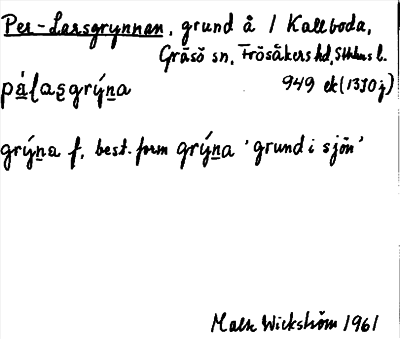 Per-Larsgrynnan, grund å / Kallboda,
Gräsö sn, Frösåkers hd, Sthlms l.
pá̱lasgrýn̲a 949 ek (13J0j)
grýn̲a f. best. form grýn̲a 'grund i sjön'
Malte Wickström 1961